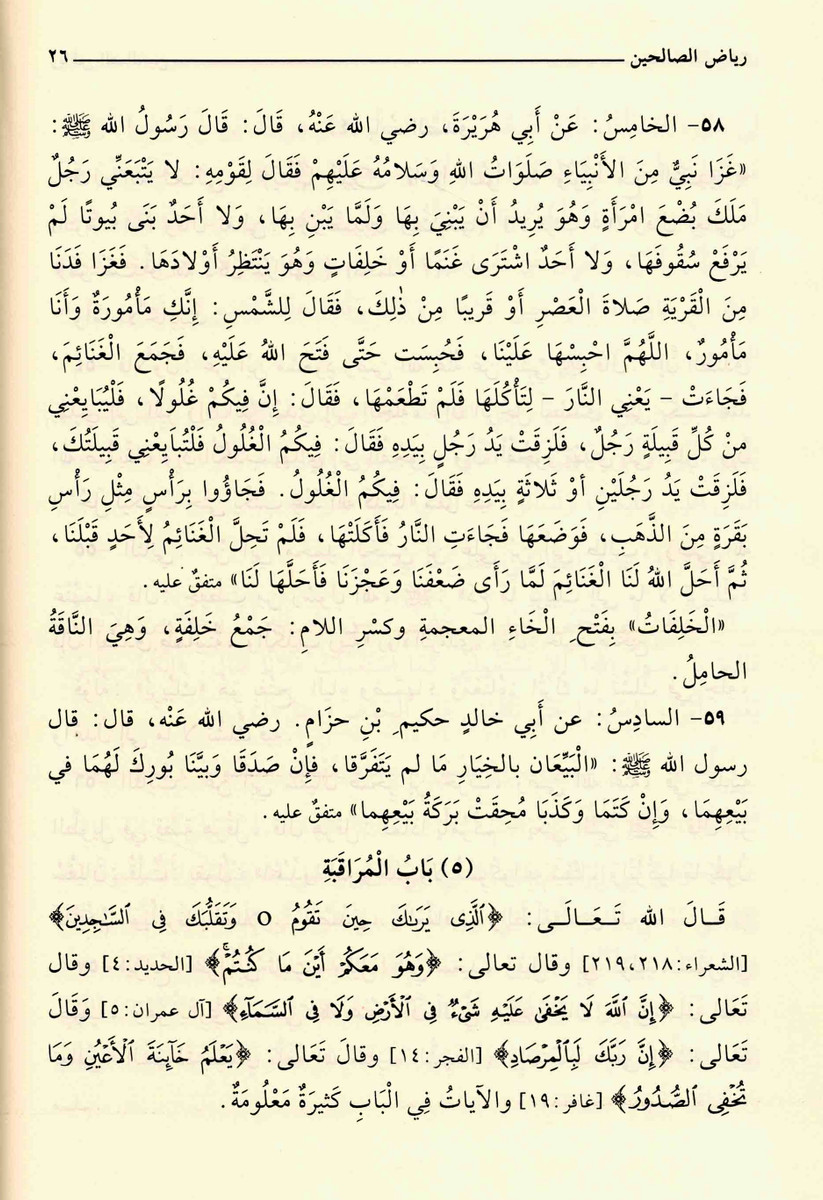 رياض الصالحين ٢٦
٥٨- الخامِسُ: عَنْ أَبِي هُرَيْرَةَ، رضي الله عَنْهُ، قَالَ: قَالَ رَسُولُ الله ﷺ:
«غَزَا نَبِيٌّ مِنَ الأَنْبِيَاءِ صَلَوَاتُ اللهِ وَسَلامُهُ عَلَيْهِمْ فَقَالَ لِقَوْمِهِ: لا يَتْبَعَنِّي رَجُلٌ
مَلَكَ بُضْعَ امْرَأَةٍ وَهُوَ يُرِيدُ أَنْ يَبْنِيَ بِهَا وَلَمَّا يَبْنِ بِهَا، وَلا أَحَدٌ بَنَى بُيوتًا لَمْ
يَرْفَعْ سُقُوفَهَا، وَلا أَحَدٌ اشْتَرَى غَنَمًا أَوْ خَلِفَاتٍ وَهُوَ يَنْتَظِرُ أَوْلادَهَا. فَغَزَا فَدَنَا
مِنَ الْقَرْيَةِ صَلاةَ الْعَصْرِ أَوْ قَرِيبًا مِنْ ذٰلِكَ، فَقَالَ لِلشَّمْسِ: إِنَّكِ مَأْمُورَةٌ وَأَنَا
مَأْمُورٌ، اللَّهُمَّ احْبِسْهَا عَلَيْنَا، فَحُبِسَت حَتَّى فَتَحَ اللهُ عَلَيْهِ، فَجَمَعَ الْغَنَائِمَ،
فَجَاءَتْ – يَعْنِي النَّارَ – لِتَأْكُلَهَا فَلَمْ تَطْعَمْهَا، فَقَالَ: إِنَّ فِيكُمْ غُلُولًا، فَلْيُبَايِعْنِي
مِنْ كُلِّ قَبِيلَةٍ رَجُلٌ، فَلَزِقَتْ يَدُ رَجُلٍ بِيَدِهِ فَقَالَ: فِيكُمُ الْغُلُولُ فَلْتُبَايِعْنِي قَبِيلَتُكَ،
فَلَزِقَتْ يَدُ رَجُلَيْنِ أوْ ثَلاثَةٍ بِيَدِهِ فَقَالَ: فِيكُمُ الْغُلُولُ. فَجَاؤُوا بِرَأْسٍ مِثْلِ رَأْسِ
بَقَرَةٍ مِنَ الذَّهَبِ، فَوَضَعَهَا فَجَاءَتِ النَّارُ فَأَكَلَتْهَا، فَلَمْ تَحِلَّ الْغَنَائِمُ لِأَحَدٍ قَبْلَنَا،
ثُمَّ أَحَلَّ اللهُ لَنَا الْغَنَائِمَ لَمَّا رَأَى ضَعْفَنَا وَعَجْزَنَا فَأَحَلَّهَا لَنَا» متفقٌ عليه.
«الْخَلِفَاتُ» بِفَتْحِ الْخَاءِ المعجمةِ وكسْرِ اللامِ: جَمْعُ خَلِفَةٍ، وَهِيَ النَّاقَةُ
الحامِلُ.
٥٩- السادِسُ: عن أَبِي خالدٍ حكيمِ بْنِ حزَامٍ. رضي الله عَنْه، قال: قال
رسول الله ﷺ: «الْبَيِّعَان بالخِيَارِ مَا لم يَتَفَرَّقا، فإِنْ صَدَقَا وَبيَّنَا بُورِكَ لَهُمَا في
بَيْعِهِمَا، وَإِنْ كَتَمَا وَكَذَبَا مُحِقَتْ بَرَكَةُ بَيْعِهِما» متفقٌ عليه.
(٥) بَابُ الْمُرَاقَبَةِ
قَـالَ الله تَـعَـالَـى: ﴿ٱلَّذِى يَرَىٰكَ حِينَ تَقُومُ ٥ وَتَقَلُّبَكَ فِى ٱلسَّٰجِدِينَ﴾
[الشعراء:٢١٩،٢١٨] وقال تعالى: ﴿وَهُوَ مَعَكُمْ أَيْنَ مَا كُنتُمْ ۚ﴾ [الحديد:٤] وقال
تَعَالى: ﴿إِنَّ ٱللَّهَ لَا يَخْفَىٰ عَلَيْهِ شَىْءٌ فِى ٱلْأَرْضِ وَلَا فِى ٱلسَّمَآءِ﴾ [آل عمران:٥] وَقَالَ
تَعَالى: ﴿إِنَّ رَبَّكَ لَبِٱلْمِرْصَادِ﴾ [الفجر:١٤] وقالَ تَعَالى: ﴿يَعْلَمُ خَآئِنَةَ ٱلْأَعْيُنِ وَمَا
تُخْفِى ٱلصُّدُورُ﴾ [غافر:١٩] والآياتُ فِي الْبَابِ كَثِيرَةٌ مَعْلُومَةٌ.